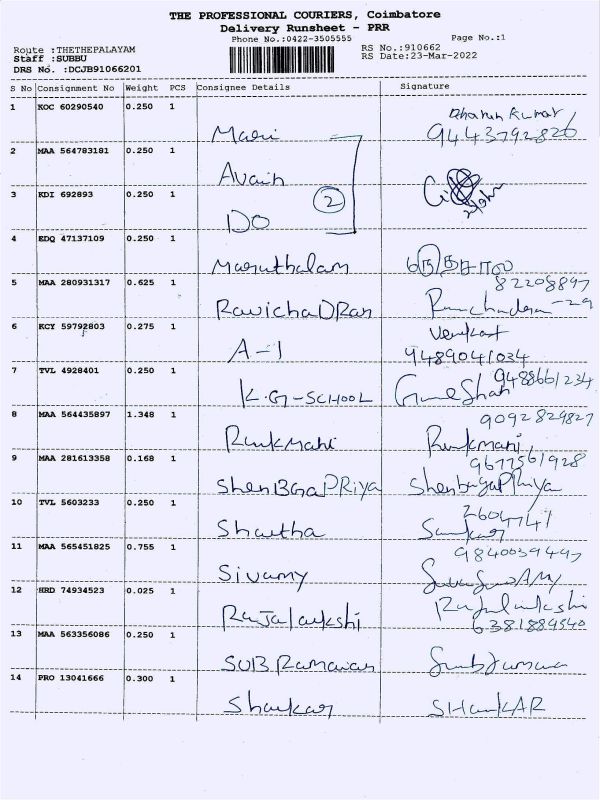 THE PROFESSIONAL COURIERS, Coimbatore
Delivery Runsheet - PRR
Phone No.:0422-3505555
Page No.:1
Route :THETHEPALAYAM
RS No.:910662
Staff :SUBBU
RS Date:23-Mar-2022
DRS No. :DCJB91066201
S No Consignment No Weight PCS Consignee Details Signature
1 KOC 60290540 0.250 1
Mari 9443792820
2 MAA 564783181 0.250 1
3 KDI 692893 0.250 1
2
DO
4 EDQ 47137109 0.250 1
Maruthalam
5 MAA 280931317 0.625 1
RavichaDRan
6 KCY 59792803 0.275 1
Venkat
A-1 9489041034
7 TVL 4928401 0.250 1
9488661234
K.G-SCHOOL
8 MAA 564435897 1.348 1
9092829827
Rukmani Rukmani
9 MAA 281613358 0.168 1
9677561928
ShenBGaPRiya ShenbagaPRiya
10 TVL 5603233 0.250 1
2604741
11 MAA 565451825 0.755 1
Sivamy
12 HRD 74934523 0.025 1
Rajalakshi Rajalakshi
6381889540
13 MAA 563356086 0.250 1
14 PRO 13041666 0.300 1
Shankar SHankAR